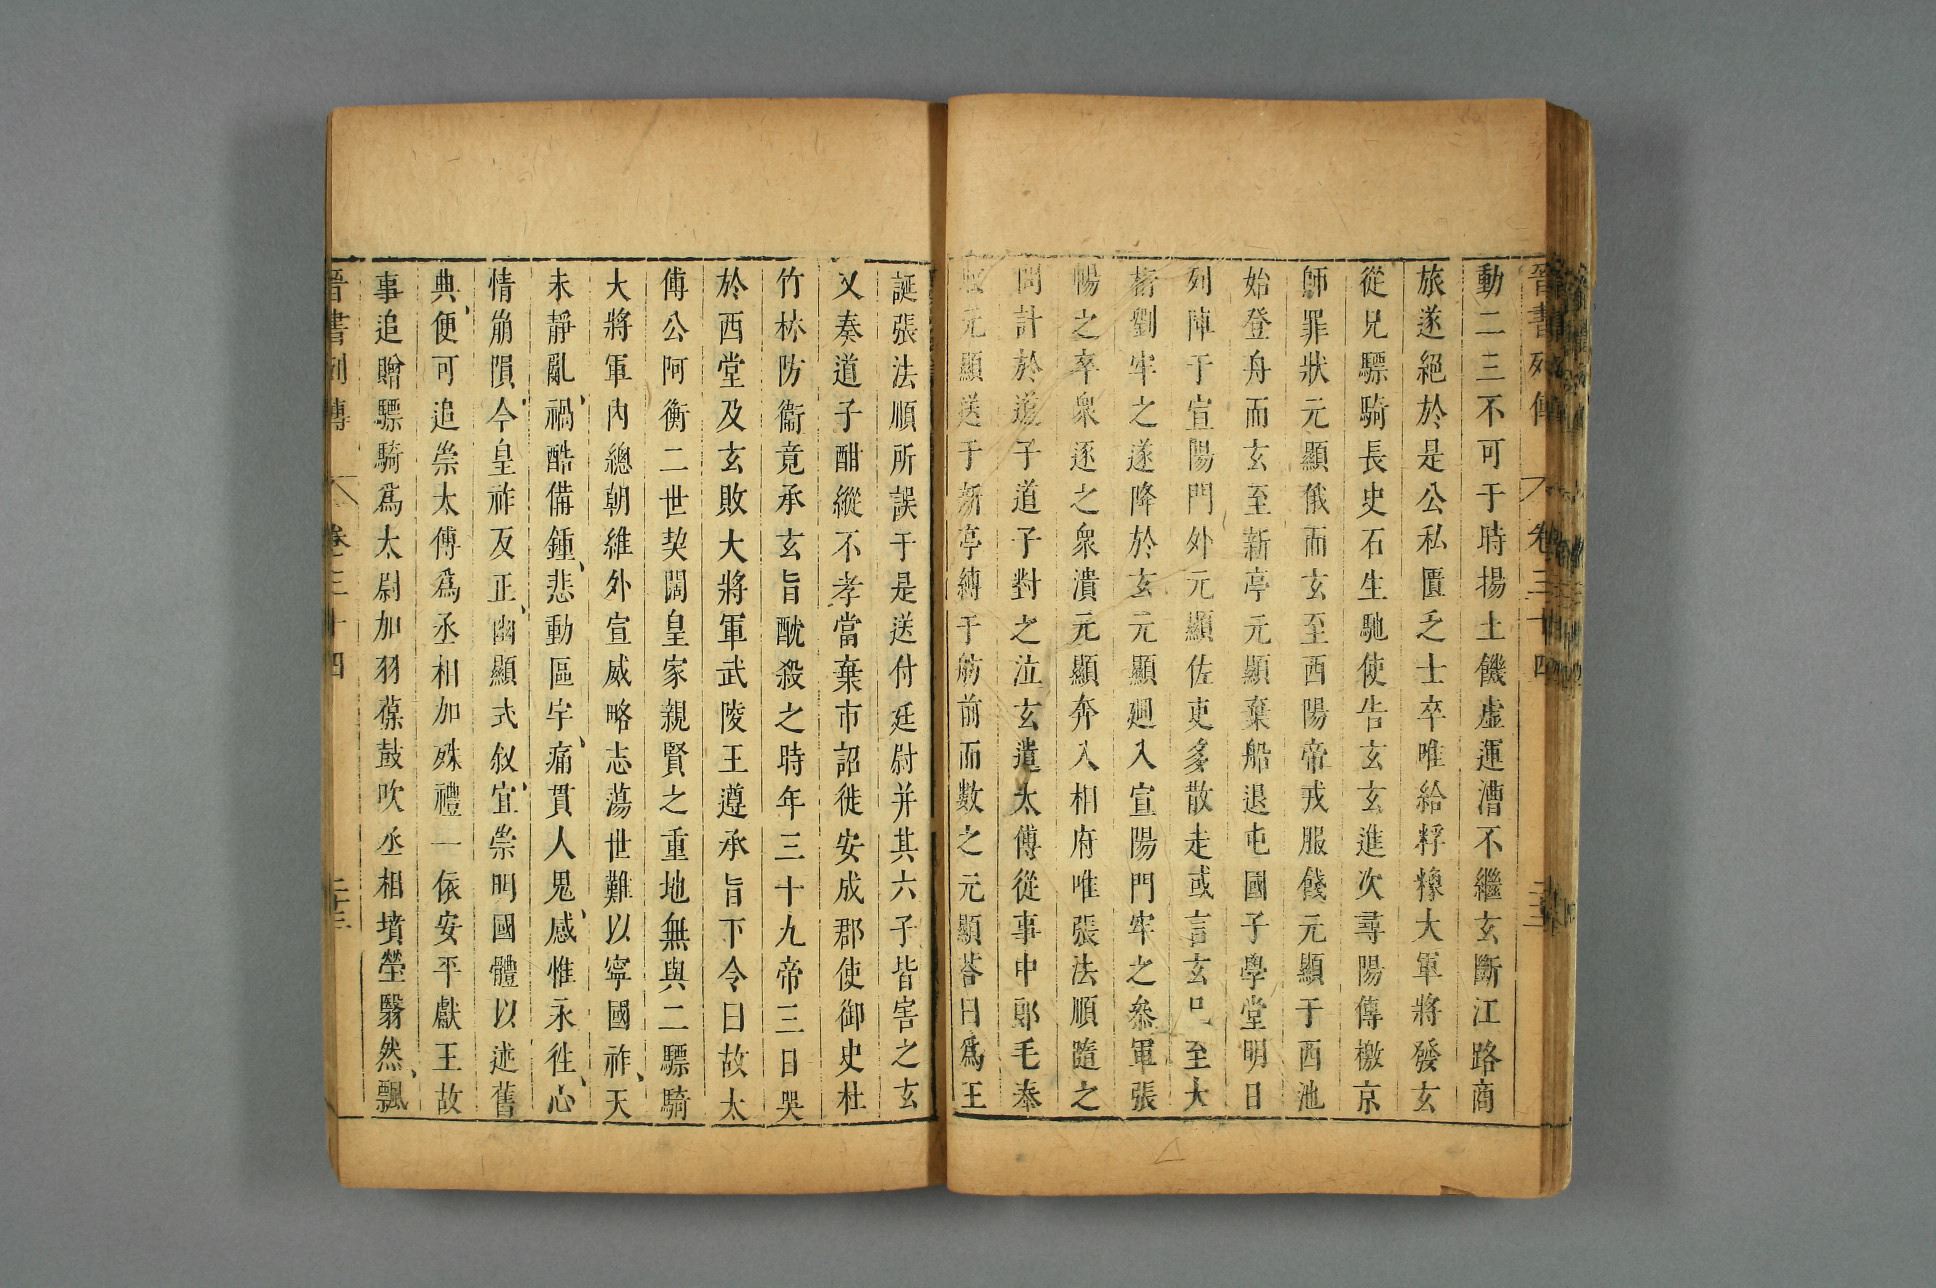 晉書列傳 卷三十四
動二三不可于時揚土饑虛運漕不繼玄斷江路商
旅遂絕於是公私匱乏士卒唯給粰橡大軍將發玄
從兄驃騎長史石生馳使告玄玄進次尋陽傳檄京
師罪狀元顯俄而玄至西陽帝戎服餞元顯于西池
始登舟而玄至新亭元顯棄船退屯國子學堂明日
列陣于宣陽門外元顯佐吏多散走或言玄已至大
桁劉牢之遂降於玄元顯廻入宣陽門牢之參軍張
暢之卒衆逐之衆潰元顯奔入相府唯張法順隨之
問計於道子道子對之泣玄遣太傅從事中郎毛泰
元顯送于新亭縛于舫前而數之元顯荅曰爲王
誕張法順所誤于是送付廷尉并其六子皆害之玄
又奏道子酣縱不孝當棄市詔徙安成郡使御史杜
竹林防衞竟承玄旨酖殺之時年三十九帝三日哭
於西堂及玄敗大將軍武陵王遵承旨下令曰故太
傅公阿衡二世契闊皇家親賢之重地無與二驃騎
大將軍內總朝維外宣威略志蕩世難以寧國祚天
未靜亂禍酷備鍾悲動區宇痛貫人鬼感惟永徃心
情崩隕今皇祚反正幽顯式叙宜崇明國體以述舊
典便可追崇太傅爲丞相加殊禮一依安平獻王故
事追贈驃騎爲太尉加羽葆鼓吹丞相墳塋翳然飄
晉書列傳 卷三十四 二十三